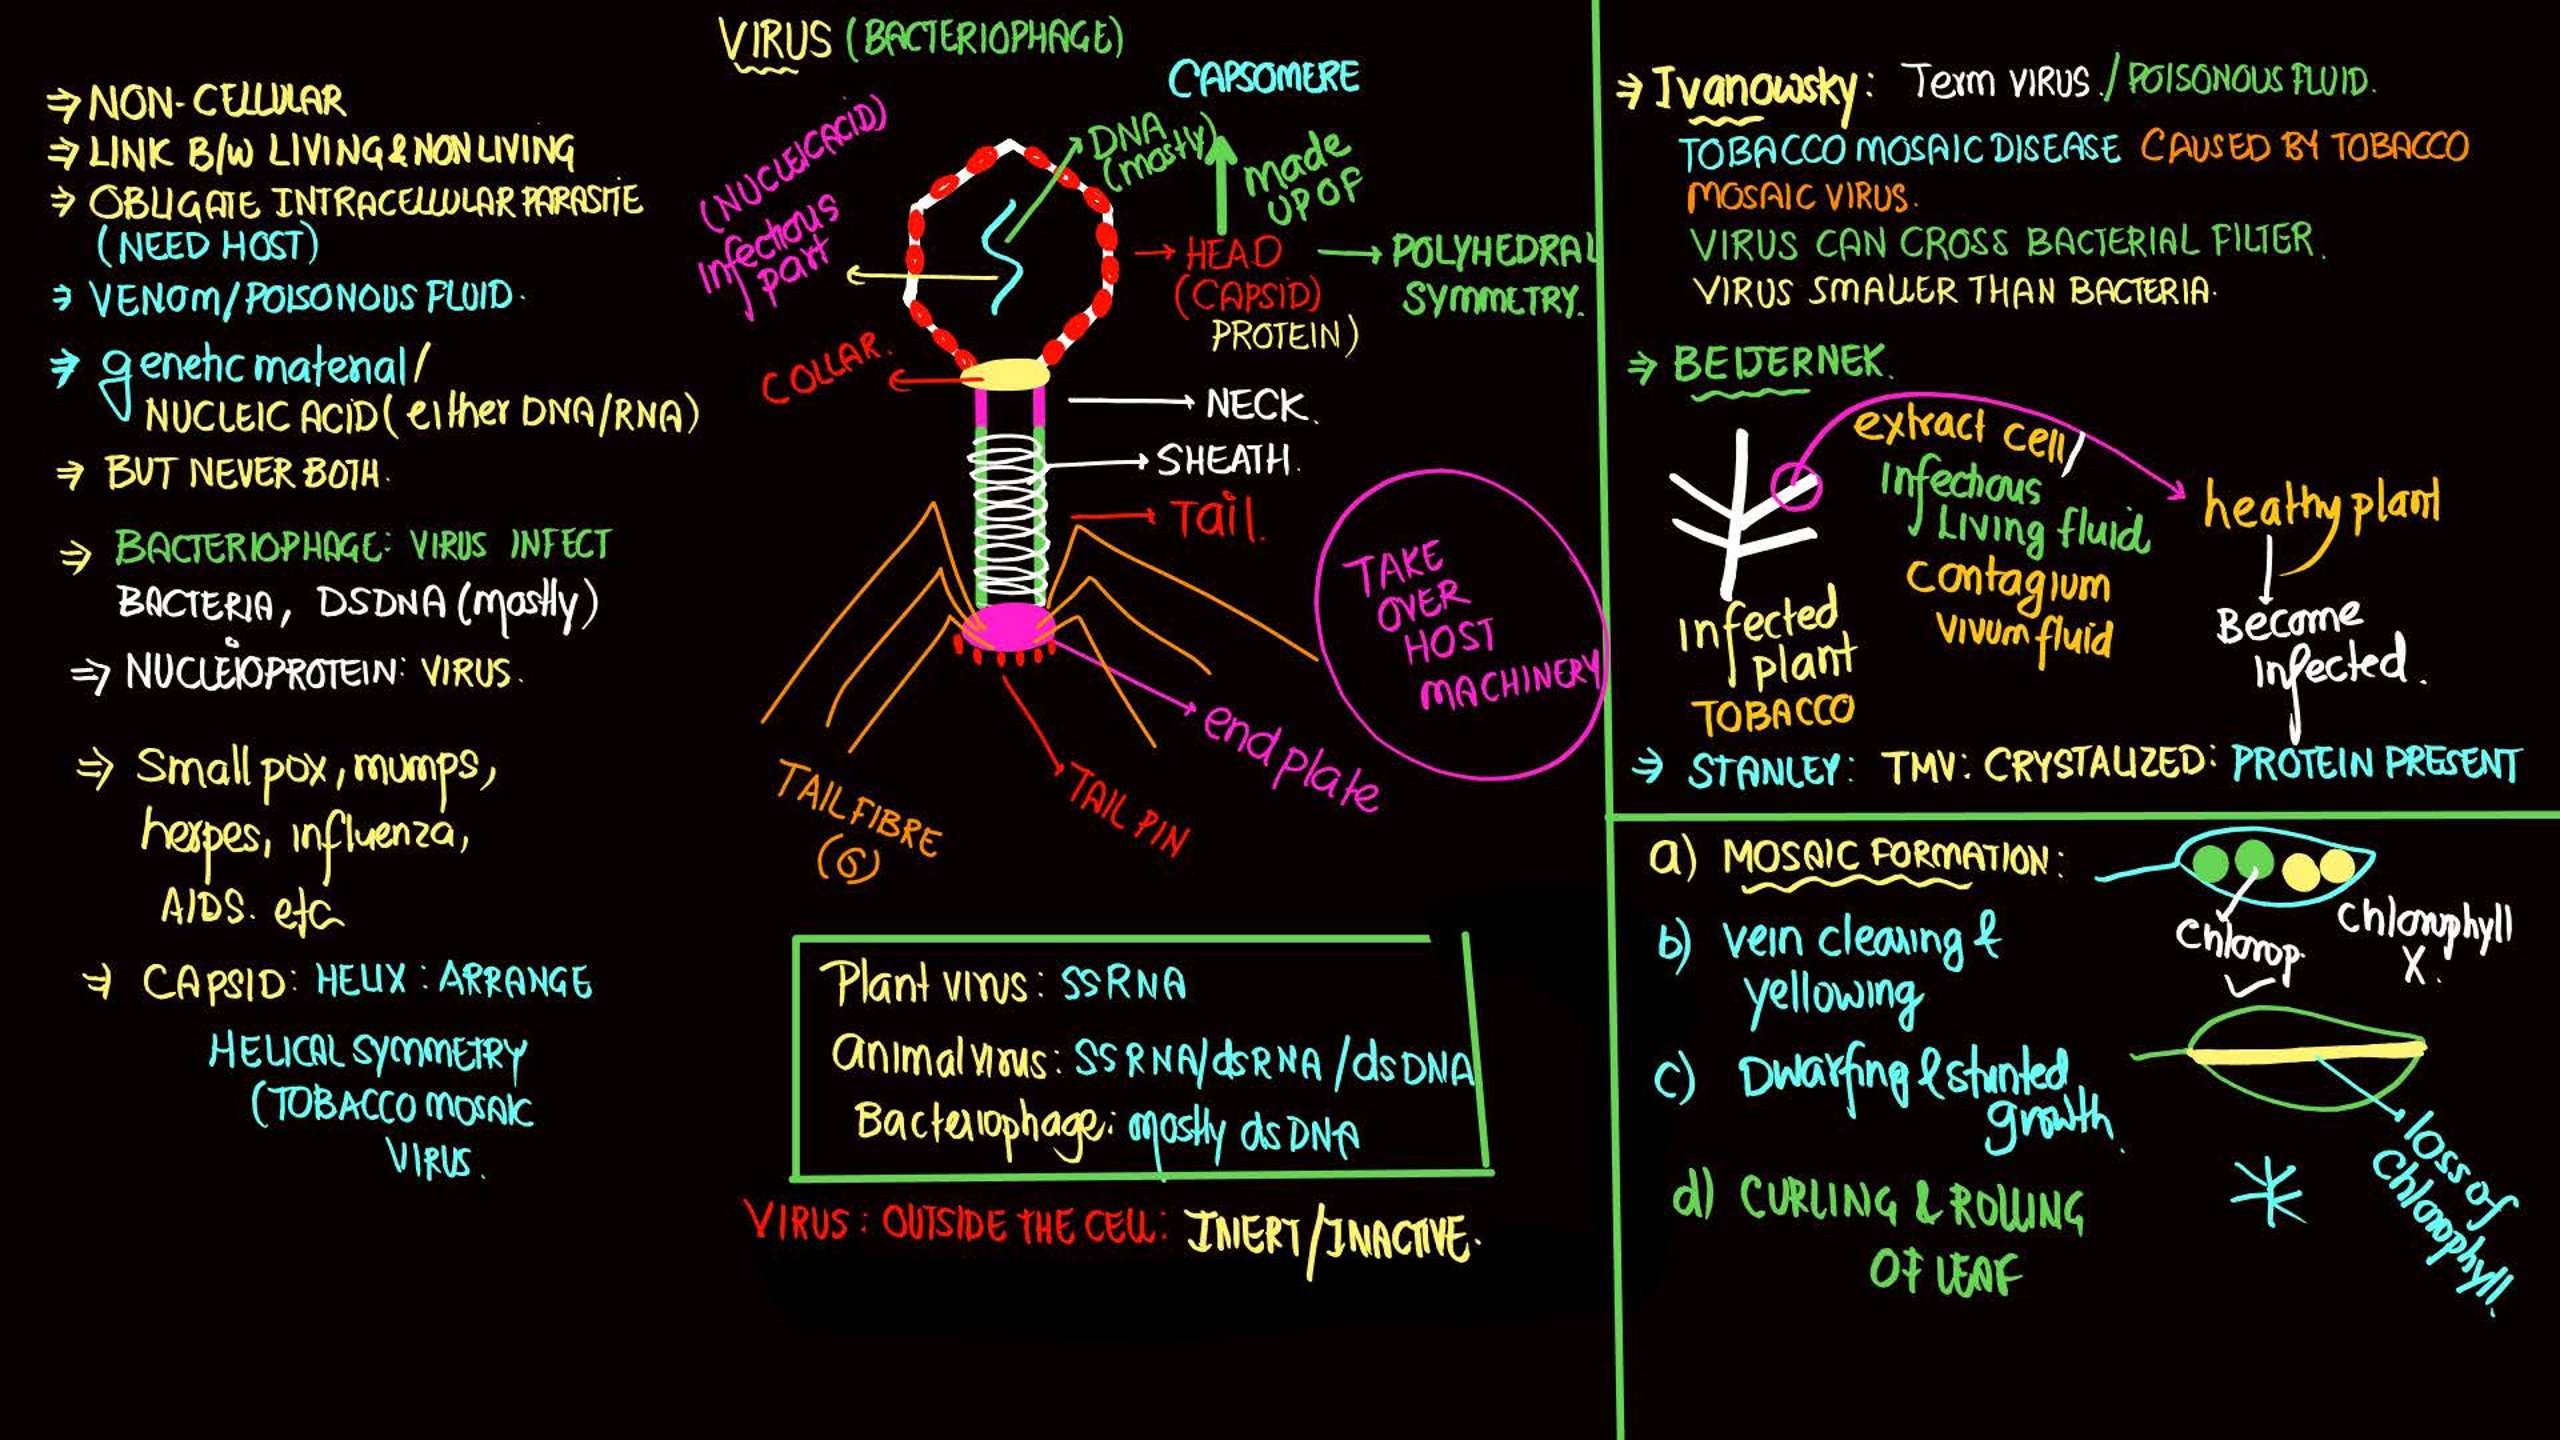 ⇒ NON-CELLULAR
⇒ LINK B/W LIVING & NON LIVING
⇒ OBLIGATE INTRACELLULAR PARASITE
(NEED HOST)
⇒ VENOM/POISONOUS FLUID.
⇒ genetic material/
NUCLEIC ACID (either DNA/RNA)
⇒ BUT NEVER BOTH.
⇒ BACTERIOPHAGE: VIRUS INFECT
BACTERIA, DSDNA (mostly)
⇒ NUCLEIOPROTEIN: VIRUS.
⇒ Small pox, mumps,
herpes, influenza,
AIDS. etc
⇒ CAPSID: HELIX: ARRANGE
HELICAL SYMMETRY
(TOBACCO MOSAIC
VIRUS.
VIRUS (BACTERIOPHAGE)
CAPSOMERE
(NUCLEIC ACID)
Infectious
part
DNA
(mostly)
made
UP OF
HEAD
(CAPSID)
PROTEIN)
POLYHEDRAL
SYMMETRY.
COLLAR.
NECK.
SHEATH.
Tail.
TAKE
OVER
HOST
MACHINERY
end plate
TAIL PIN
TAIL FIBRE
(6)
Plant virus: SSRNA
Animal virus: SSRNA/dsRNA/dsDNA
Bacteriophage: mostly dsDNA
VIRUS: OUTSIDE THE CELL: INERT/INACTIVE.
⇒ Ivanowsky: Term VIRUS./POISONOUS FLUID.
TOBACCO MOSAIC DISEASE CAUSED BY TOBACCO
MOSAIC VIRUS.
VIRUS CAN CROSS BACTERIAL FILTER.
VIRUS SMALLER THAN BACTERIA.
⇒ BEIJERNEK.
extract cell/
Infectious
Living fluid
Contagium
Vivum fluid
healthy plant
Become
Infected.
Infected
plant
TOBACCO
⇒ STANLEY: TMV: CRYSTALIZED: PROTEIN PRESENT
a) MOSAIC FORMATION:
Chlorop.
Chlorophyll
X.
b) vein clearing &
yellowing
c) Dwarfing & stunted
growth.
loss of
Chlorophyll.
d) CURLING & ROLLING
OF LEAF